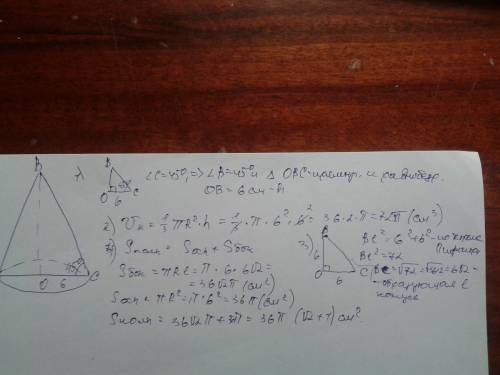 B
1)
B
45°
O 6 C
∠C=45°, => ∠B=45° и Δ OBC-прямоуг. и равнобедр.
OB = 6 см - h
2) Vк = 1/3 πR²·h = 1/3·π·6²·6 = 36·2·π = 72π (см³)
Sполн = Sосн + Sбок
Sбок = πRl = π·6·6√2 =
= 36√2π (см²)
Sосн = πR² = π·6² = 36π (см²)
Sполн = 36√2π + 36π = 36π (√2+1) см²
45° C
O 6
3)
B
6
O 6 C
Bc² = 6²+6² - по теореме
Пифагора
Bc² = 72
Bc = √72 = 6√2 -
образующая l
конуса